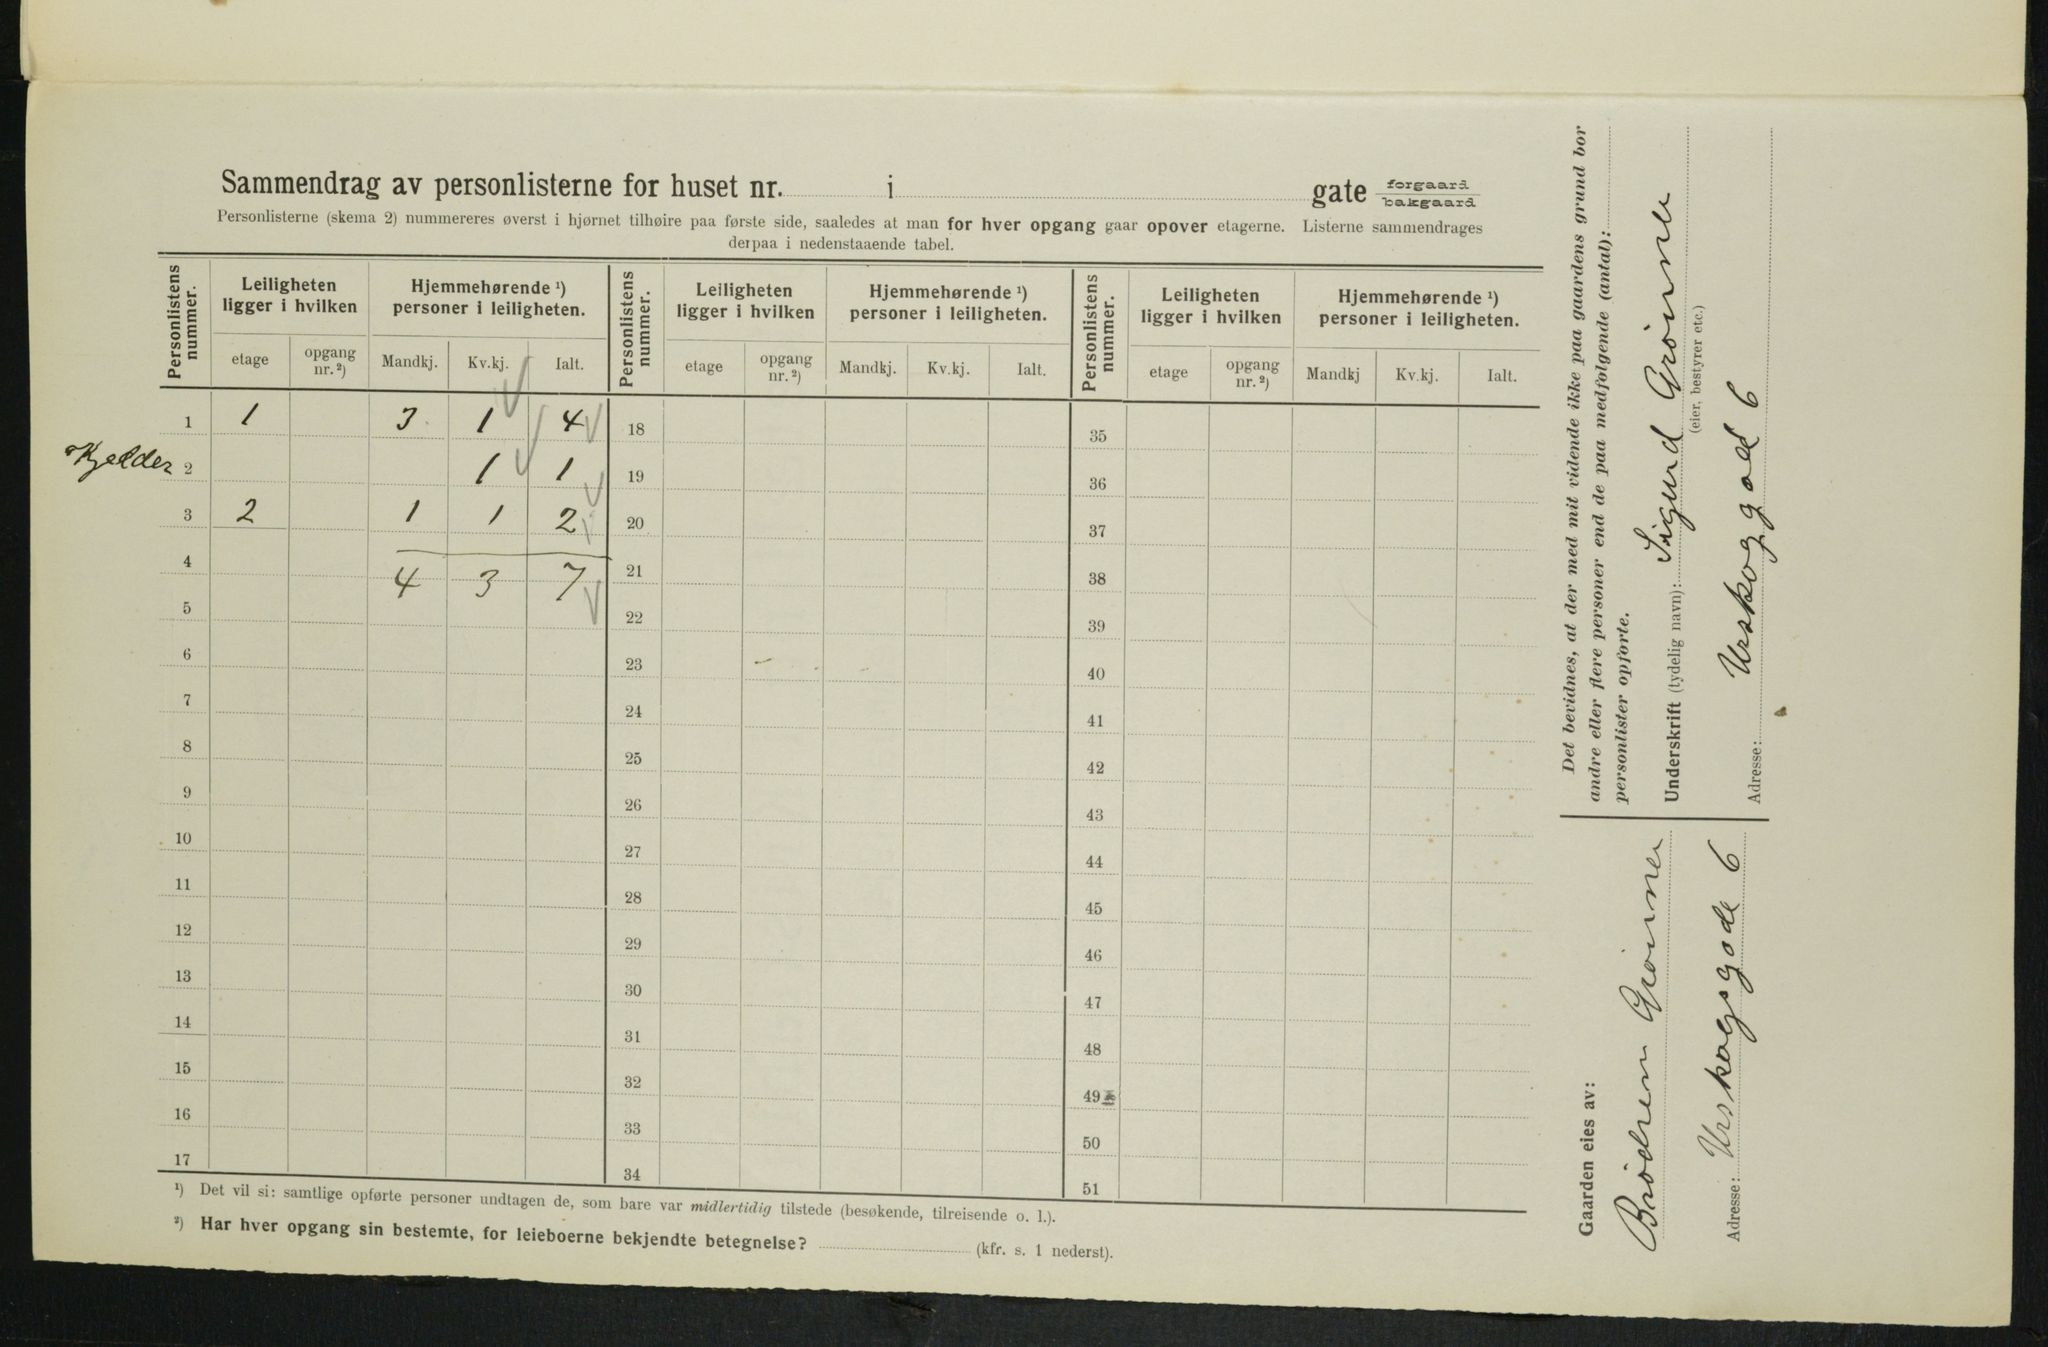 Sammendrag av personlisterne for huset nr. i gate forgaard bakgaard
Personlisterne (skema 2) nummereres øverst i hjørnet tilhøire paa første side, saaledes at man for hver opgang gaar opover etagerne. Listerne sammendrages
derpaa i nedenstaaende tabel.
Personlistens nummer. Leiligheten ligger i hvilken Hjemmehørende ¹) personer i leiligheten. Personlistens nummer. Leiligheten ligger i hvilken Hjemmehørende ¹) personer i leiligheten. Personlistens nummer. Leiligheten ligger i hvilken Hjemmehørende ¹) personer i leiligheten.
etage opgang nr. ²) Mandkj. Kv.kj. Ialt. etage opgang nr. ²) Mandkj. Kv.kj. Ialt. etage opgang nr. ²) Mandkj Kv.kj. Ialt.
1 1 3 1 4 18 35
Kjelder 2 1 1 19 36
3 2 1 1 2 20 37
4 4 3 7 21 38
5 22 39
6 23 40
7 24 41
8 25 42
9 26 43
10 27 44
11 28 45
12 29 46
13 30 47
14 31 48
15 32 49
16 33 50
17 34 51
¹) Det vil si: samtlige opførte personer undtagen de, som bare var midlertidig tilstede (besøkende, tilreisende o. l.).
²) Har hver opgang sin bestemte, for leieboerne bekjendte betegnelse? (kfr. s. 1 nederst).
Det bevidnes, at der med mit vidende ikke paa gaardens grund bor
andre eller flere personer end de paa medfolgende (antal):
personlister opforte.
Underskrift (tydelig navn): Sigurd Grönner
(eier, bestyrer etc.)
Adresse: Urskoggade 6
Gaarden eies av:
Brödrene Grönner
Adresse: Urskogsgade 6